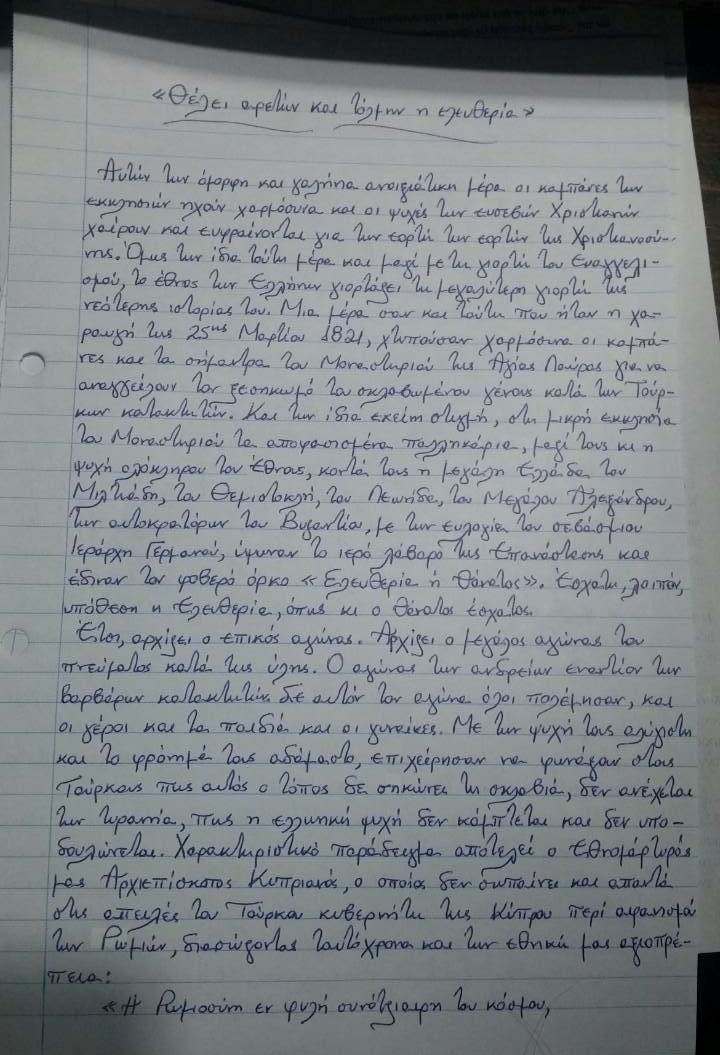 «Θέλει αρετήν και τόλμην η ελευθερία»
Αυτήν την όμορφη και γαλήνια ανοιξιάτικη μέρα οι καμπάνες των
εκκλησιών ηχούν χαρμόσυνα και οι ψυχές των ευσεβών Χριστιανών
χαίρουν και ευφραίνονται για την εορτή των εορτών της Χριστιανοσύ-
νης. Όμως την ίδια τούτη μέρα και μαζί με τη γιορτή του Ευαγγελι-
σμού, το έθνος των Ελλήνων γιορτάζει τη μεγαλύτερη γιορτή της
νεότερης ιστορίας του. Μια μέρα σαν και τούτη που ήταν η χα-
ραυγή της 25ης Μαρτίου 1821, χτυπούσαν χαρμόσυνα οι καμπά-
νες και τα σήμαντρα του Μοναστηριού της Αγίας Λαύρας για να
αναγγείλουν τον ξεσηκωμό του σκλαβωμένου γένους κατά των Τούρ-
κων κατακτητών. Και την ίδια εκείνη στιγμή, στη μικρή εκκλησία
του Μοναστηριού τα αποφασισμένα παλληκάρια, μαζί τους κι η
ψυχή ολόκληρου του έθνους, κοντά τους η μεγάλη Ελλάδα του
Μιλτιάδη, του Θεμιστοκλή, του Λεωνίδα, του Μεγάλου Αλεξάνδρου,
των αυτοκρατόρων του Βυζαντίου, με την ευλογία του σεβάσμιου
Ιεράρχη Γερμανού, ύψωναν το ιερό λάβαρο της Επανάστασης και
έδιναν τον φοβερό όρκο «Ελευθερία ή Θάνατος». Έσχατη, λοιπόν,
υπόθεση η Ελευθερία, όπως κι ο θάνατος έσχατος.
Έτσι, αρχίζει ο επικός αγώνας. Αρχίζει ο μεγάλος αγώνας του
πνεύματος κατά της ύλης. Ο αγώνας των ανδρείων εναντίον των
βαρβάρων κατακτητών. Σε αυτόν τον αγώνα όλοι πολέμησαν, και
οι γέροι και τα παιδιά και οι γυναίκες. Με την ψυχή τους αλύγιστη
και το φρόνημά τους αδάμαστο, επιχείρησαν να φωνάξουν στους
Τούρκους πως αυτός ο τόπος δε σηκώνει τη σκλαβιά, δεν ανέχεται
την τυραννία, πως η ελληνική ψυχή δεν κάμπτεται και δεν υπο-
δουλώνεται. Χαρακτηριστικό παράδειγμα αποτελεί ο Εθνομάρτυράς
μας Αρχιεπίσκοπος Κυπριανός, ο οποίος δεν σωπαίνει και απαντά
στις απειλές του Τούρκου κυβερνήτη της Κύπρου περί αφανισμού
των Ρωμιών, διασώζοντας ταυτόχρονα και την εθνική μας αξιοπρέ-
πεια:
«Η Ρωμιοσύνη εν φυλή συνότζιαιρη του κόσμου,